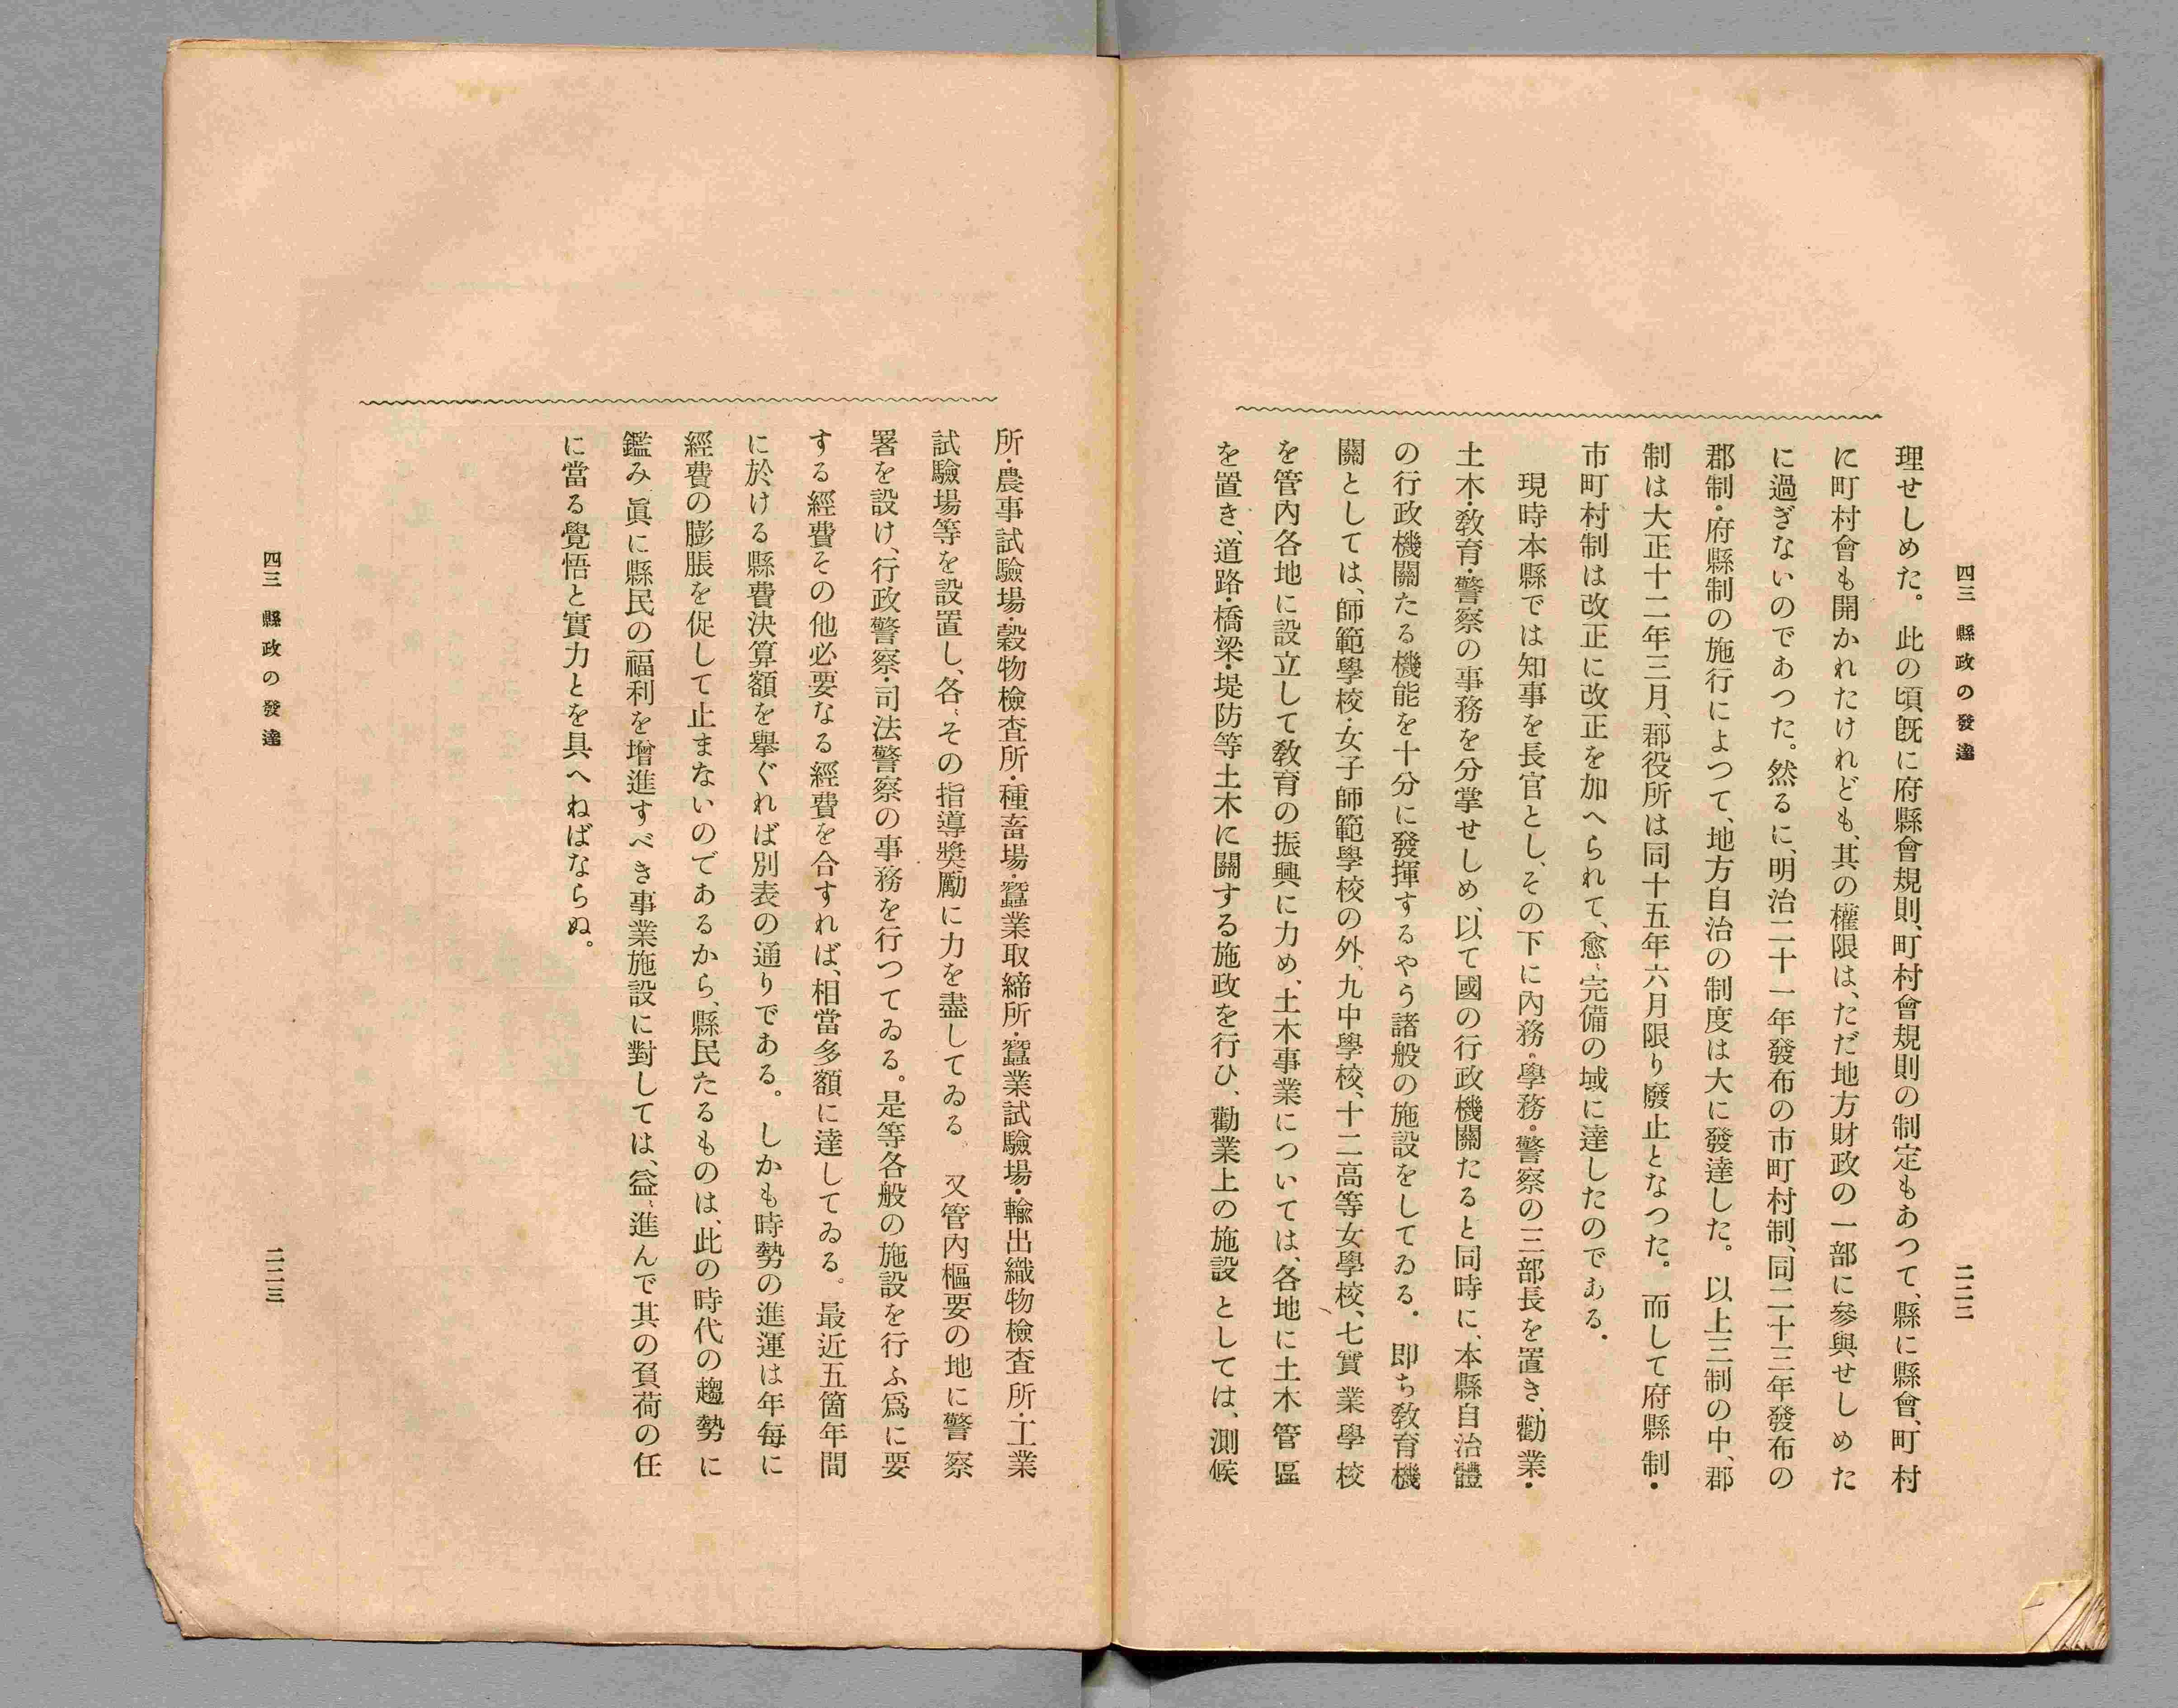 四三 縣政の發達
二二二
理せしめた。此の頃旣に府縣會規則、町村會規則の制定もあつて、縣に縣會、町村
に町村會も開かれたけれども、其の權限は、ただ地方財政の一部に參與せしめた
に過ぎないのであつた。然るに、明治二十一年發布の市町村制、同二十三年發布の
郡制・府縣制の施行によつて、地方自治の制度は大に發達した。以上三制の中、郡
制は大正十二年三月、郡役所は同十五年六月限り廢止となつた。而して府縣制・
市町村制は改正に改正を加へられて、愈〻完備の域に達したのである。
現時本縣では知事を長官とし、その下に內務・學務・警察の三部長を置き、勸業・
土木・敎育・警察の事務を分掌せしめ、以て國の行政機關たると同時に、本縣自治體
の行政機關たる機能を十分に發揮するやう諸般の施設をしてゐる。卽ち敎育機
關としては、師範學校・女子師範學校の外、九中學校、十二高等女學校、七實業學校
を管內各地に設立して敎育の振興に力め、土木事業については、各地に土木管區
を置き、道路・橋梁・堤防等土木に關する施政を行ひ、勸業上の施設としては、測候
所・農事試驗場・穀物檢査所・種畜場・蠶業取締所・蠶業試驗場・輸出織物檢査所・工業
試驗場等を設置し、各〻その指導獎勵に力を盡してゐる。又管內樞要の地に警察
署を設け、行政警察・司法警察の事務を行つてゐる。是等各般の施設を行ふ爲に要
する經費その他必要なる經費を合すれば、相當多額に達してゐる。最近五箇年間
に於ける縣費決算額を擧ぐれば別表の通りである。しかも時勢の進運は年每に
經費の膨脹を促して止まないのであるから、縣民たるものは、此の時代の趨勢に
鑑み、眞に縣民の福利を增進すべき事業施設に對しては、益〻進んで其の負荷の任
に當る覺悟と實力とを具へねばならぬ。
四三 縣政の發達
二二三